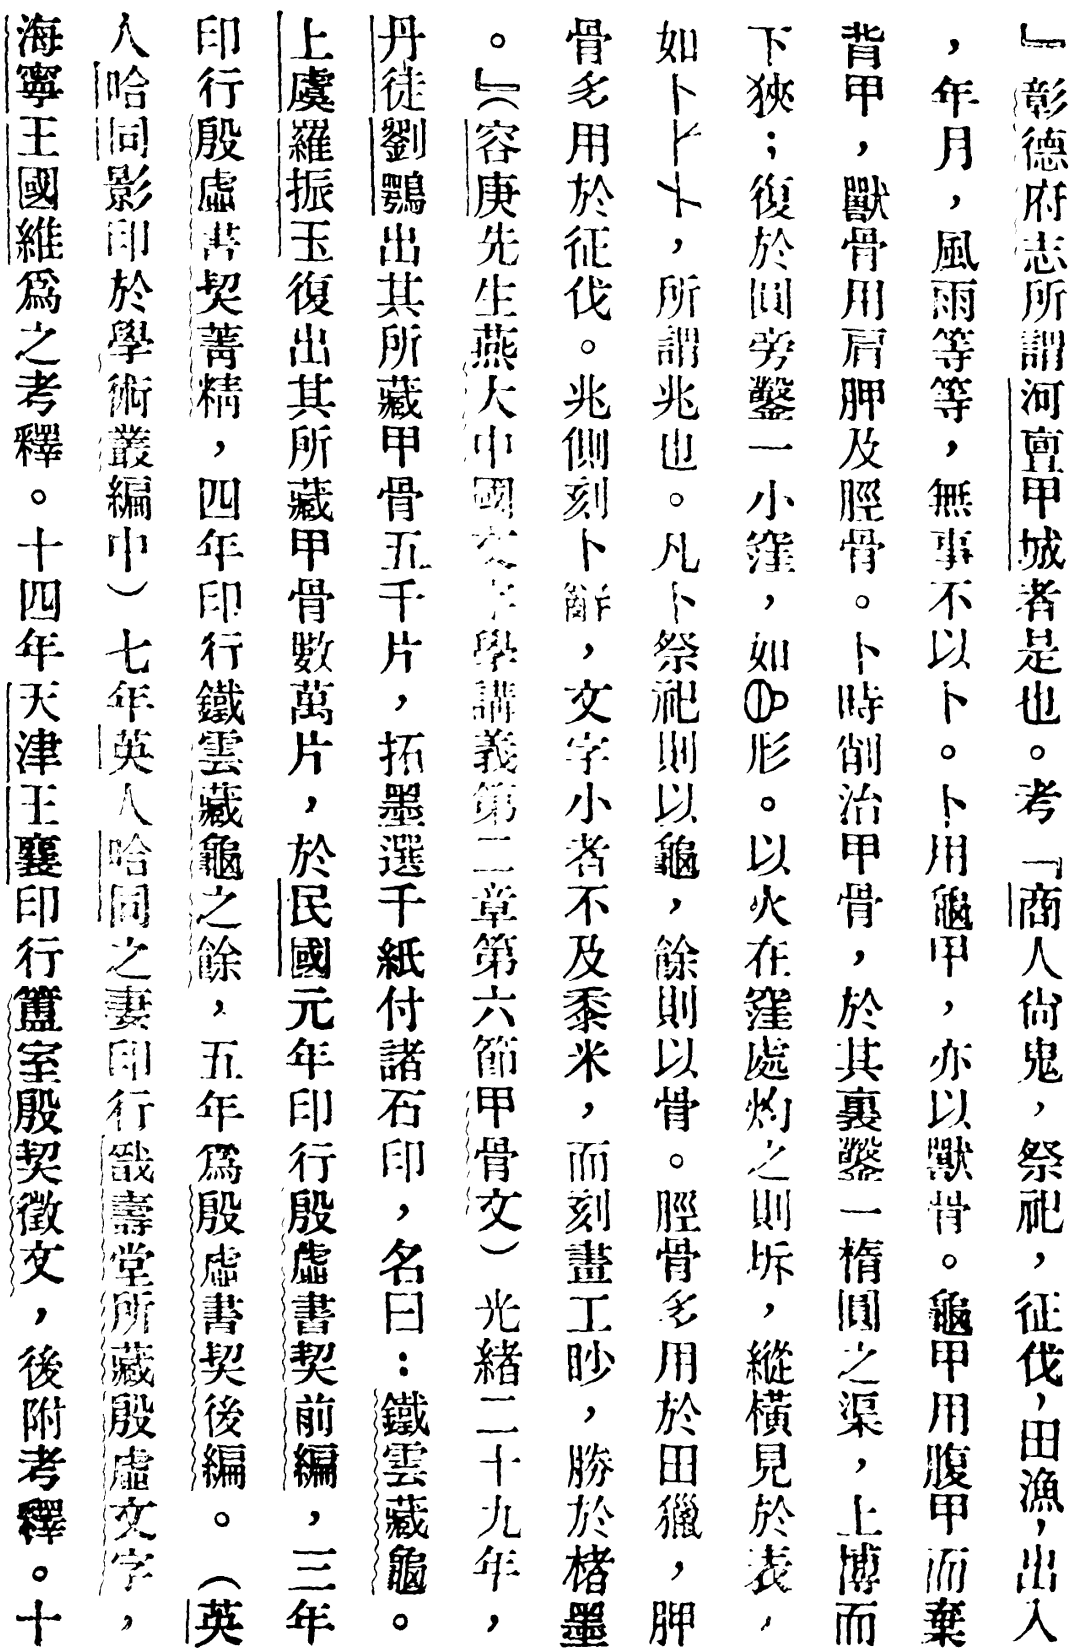 』彰德府志所謂河亶甲城者是也。考「商人尙鬼，祭祀，征伐，田漁，出入
，年月，風雨等等，無事不以卜。卜用龜甲，亦以獸骨。龜甲用腹甲而棄
背甲，獸骨用肩胛及脛骨。卜時削治甲骨，於其裏鑿一橢圓之渠，上博而
下狹；復於圓旁鑿一小窪，如形。以火在窪處灼之則坼，縱橫見於表，
如卜，所謂兆也。凡卜祭祀則以龜，餘則以骨。脛骨多用於田獵，胛
骨多用於征伐。兆側刻卜辭，文字小者不及黍米，而刻畫工眇，勝於楮墨
。』（容庚先生燕大中國文字學講義第二章第六節甲骨文）光緒二十九年，
丹徒劉鶚出其所藏甲骨五千片，拓墨選千紙付諸石印，名曰：鐵雲藏龜。
上虞羅振玉復出其所藏甲骨數萬片，於民國元年印行殷虛書契前編，三年
印行殷虛書契菁精，四年印行鐵雲藏龜之餘，五年爲殷虛書契後編。（英
人哈同影印於學術叢編中）七年英人哈同之妻印行戩壽堂所藏殷虛文字，
海寧王國維爲之考釋。十四年天津王襄印行簠室殷契徵文，後附考釋。十